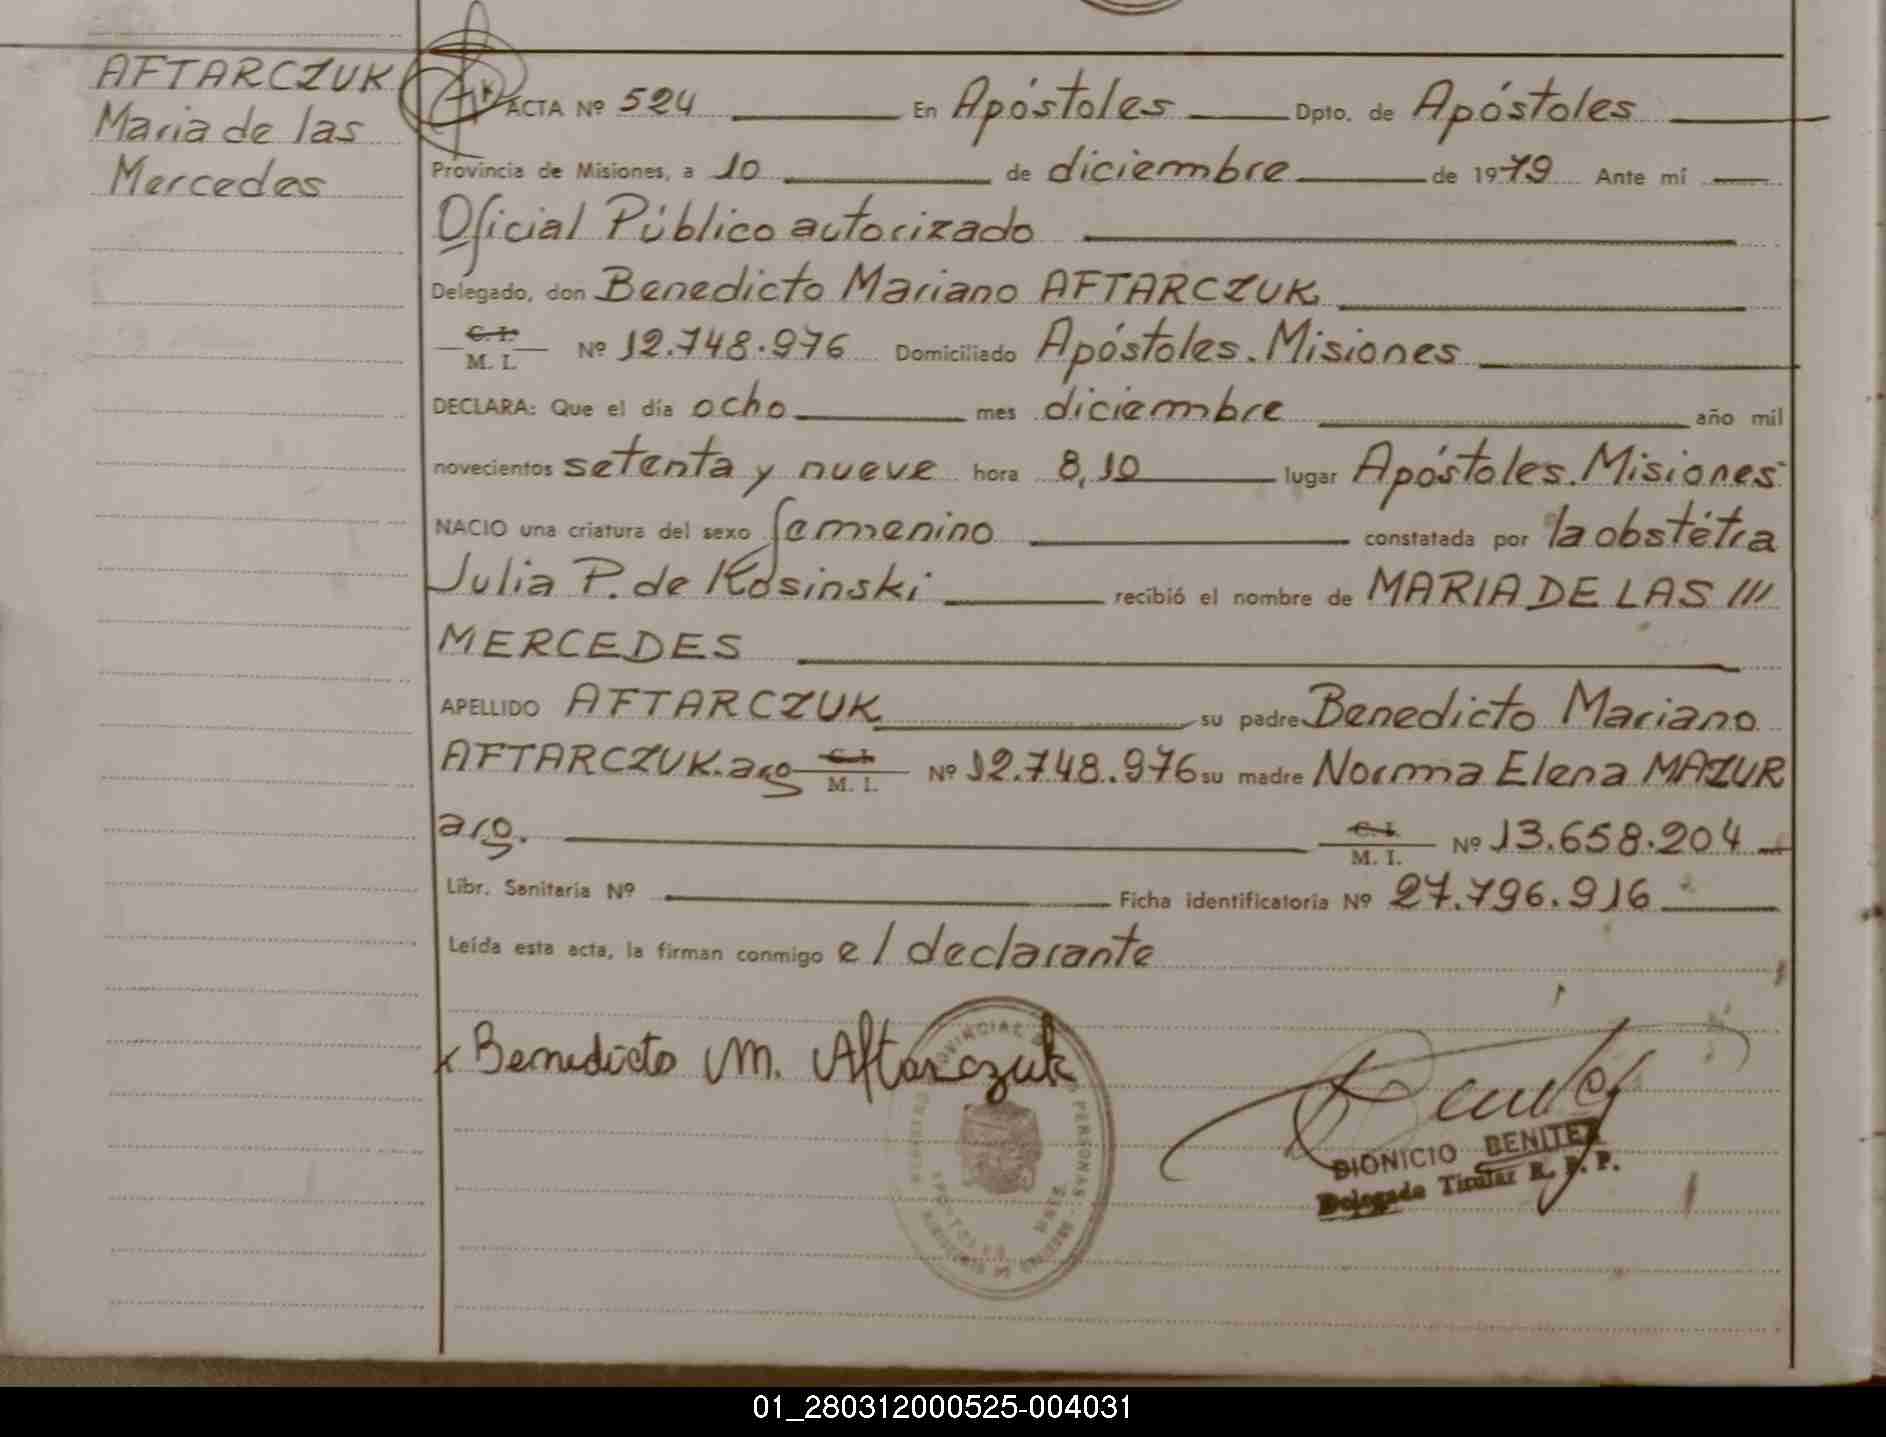 AFTARCZUK
Maria de las
Mercedes
ACTA Nº 524 En Apóstoles Dpto. de Apóstoles
Provincia de Misiones, a 10 de diciembre de 1979 Ante mí
Oficial Público autorizado
Delegado, don Benedicto Mariano AFTARCZUK
C. I.
M. I. Nº 12.748.976 Domiciliado Apóstoles. Misiones
DECLARA: Que el día ocho mes diciembre año mil
novecientos setenta y nueve hora 8,10 lugar Apóstoles. Misiones
NACIO una criatura del sexo femenino constatada por la obstétra
Julia P. de Kosinski recibió el nombre de MARIA DE LAS ///
MERCEDES
APELLIDO AFTARCZUK su padre Benedicto Mariano
AFTARCZUK. arg C. I.
M. I. Nº 12.748.976 su madre Norma Elena MAZUR
arg. C. I.
M. I. Nº 13.658.204
Libr. Sanitaria Nº Ficha identificatoria Nº 27.796.916
Leída esta acta, la firman conmigo el declarante
x Benedicto M. Aftarczuk
DIONICIO BENITEZ
Delegado Titular R. P. P.
01_280312000525-004031